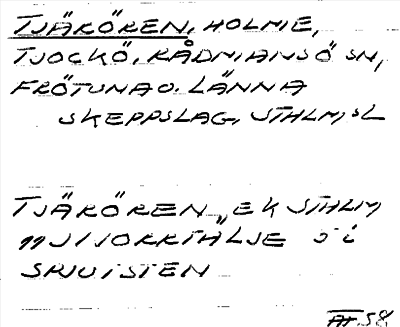 TJÄRÖREN, HOLME,
TJOCKÖ, RÅDMANSÖ SN,
FRÖTUNA O. LÄNNA
SKEPPSLAG, STHLM, SL
TJÄRÖREN, EK STHLM
11J 1J NORRTÄLJE
58